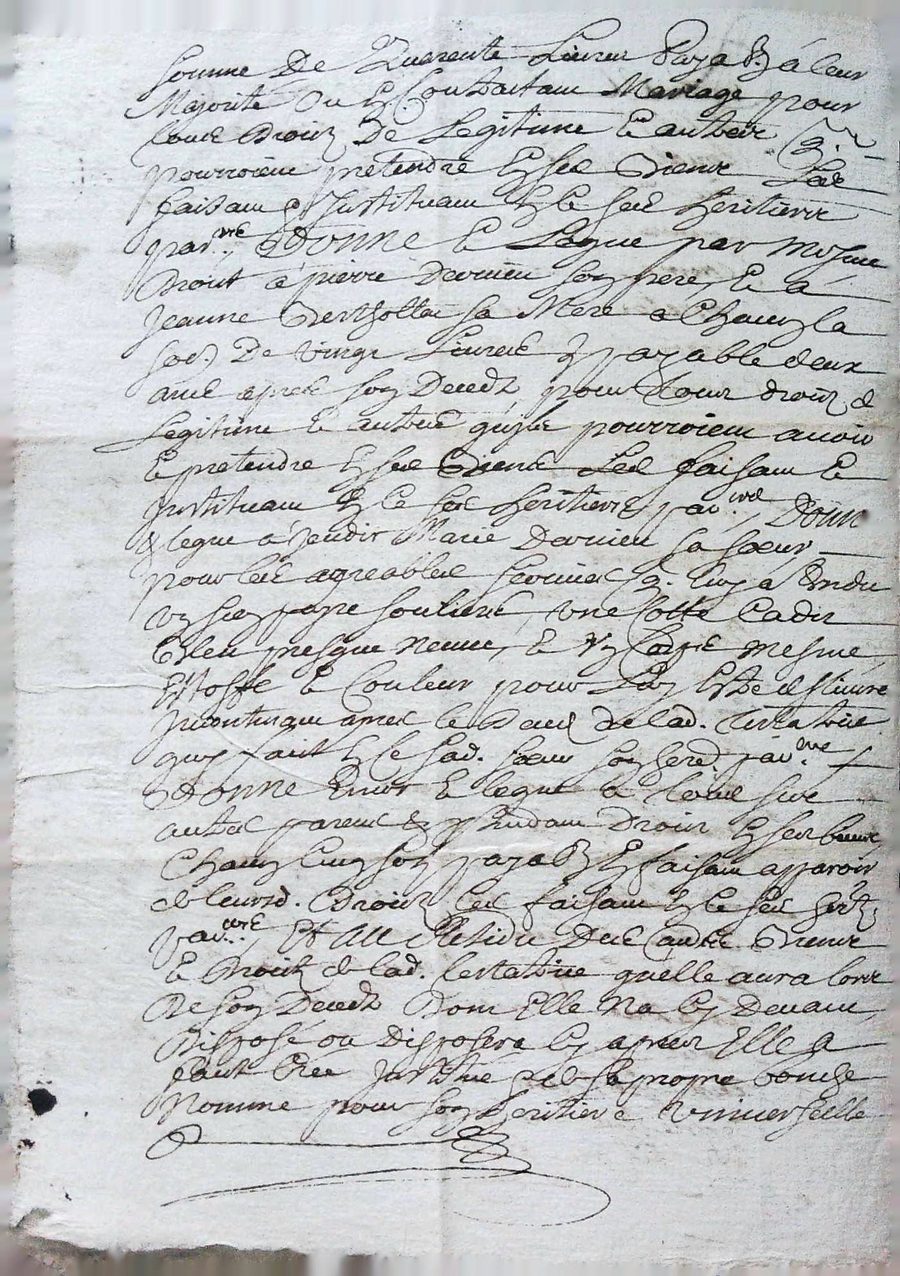 somme De Quarente Livres payab. à leur
Majorité Ou En Contractant Mariage pour
tous Droitz De Legitime et autres q.
pourroient pretendre En ses Biens Les
faisant & Instituant En ce ses heritiers
par.res Donne et Legue par mesme
Droit a pierre Derrieu son frere, et a
Jeanne sa Mere a Chacun la
so.e De vingt Livres payable deux
ans apres son Decedz pour tous droitz de
Legitime et autres qu'ils pourroient avoir
et pretendre En ses Biens Les faisant et
Instituant En ce ses heritiers par.res Donne
& legue a Marie Derrieu sa sœur
pour les agreables services q. luy a Rendu
une Cotte Cadis
Bleu presque neuve, et un mesme
Estoffe et Couleur pour Luy Estre delivré
Incontinant apres le Decedz de lad. testatrice
quoy fait En ce sad. sœur son herit. par.re
Donne Encor et legue a tous ses
autres parens & pretendans Droit En ses biens
Chacun Cinq solz payab. En faisant apparoir
de leursd. Droitz les faisant En ce ses herit.
par.res, Et Au Residu De ses autres Biens
et Droitz de lad. testatrice quelle aura lors
De son Decedz Dont Elle Na Cy Devant
Disposé ou Disposera Cy apres Elle a
fait Créé Institué & de sa propre bouche
Nommé pour son heritiere universelle